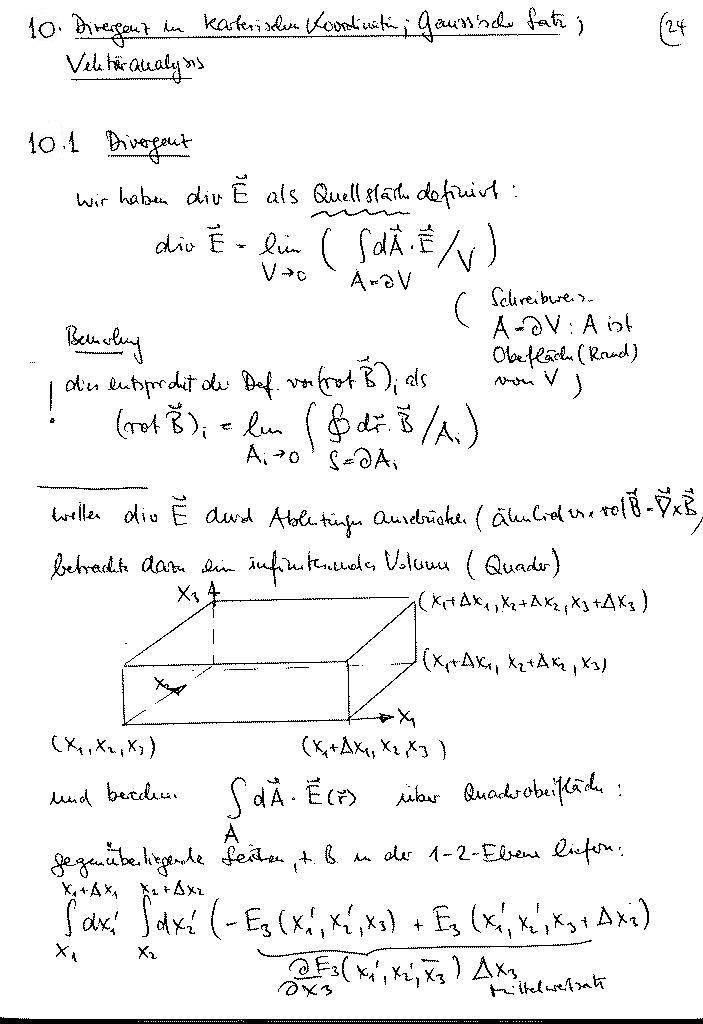 10. Divergenz in kartesischen Koordinaten; Gaussscher Satz; (24
Vektoranalysis
10.1 Divergenz
wir haben div E⃗ als Quellstärke definiert:
div E⃗ = lim_{V→0} ( ∫_{A=∂V} dA⃗ · E⃗ / V )
( Schreibweise
A=∂V: A ist
Oberfläche (Rand)
von V )
Bemerkung
! dies entspricht der Def. von (rot B⃗)_i als
(rot B⃗)_i = lim_{A_i→0} ( ∮_{S=∂A_i} dr⃗ · B⃗ / A_i )
wollen div E⃗ durch Ableitungen ausdrücken (ähnlich wie rot B⃗ = ∇⃗×B⃗)
betrachte dazu ein infinitesimales Volumen (Quader)
x₃
(x₁+Δx₁, x₂+Δx₂, x₃+Δx₃)
(x₁+Δx₁, x₂+Δx₂, x₃)
x₂
x₁
(x₁, x₂, x₃) (x₁+Δx₁, x₂, x₃)
und berechne ∫_A dA⃗ · E⃗(r⃗) über Quaderoberfläche:
gegenüberliegende Seiten, z.B. in der 1-2-Ebene liefern:
∫_{x₁}^{x₁+Δx₁} dx₁' ∫_{x₂}^{x₂+Δx₂} dx₂' (-E₃(x₁', x₂', x₃) + E₃(x₁', x₂', x₃+Δx₃)
∂E₃/∂x₃ (x₁', x₂', x̄₃) Δx₃
Mittelwertsatz